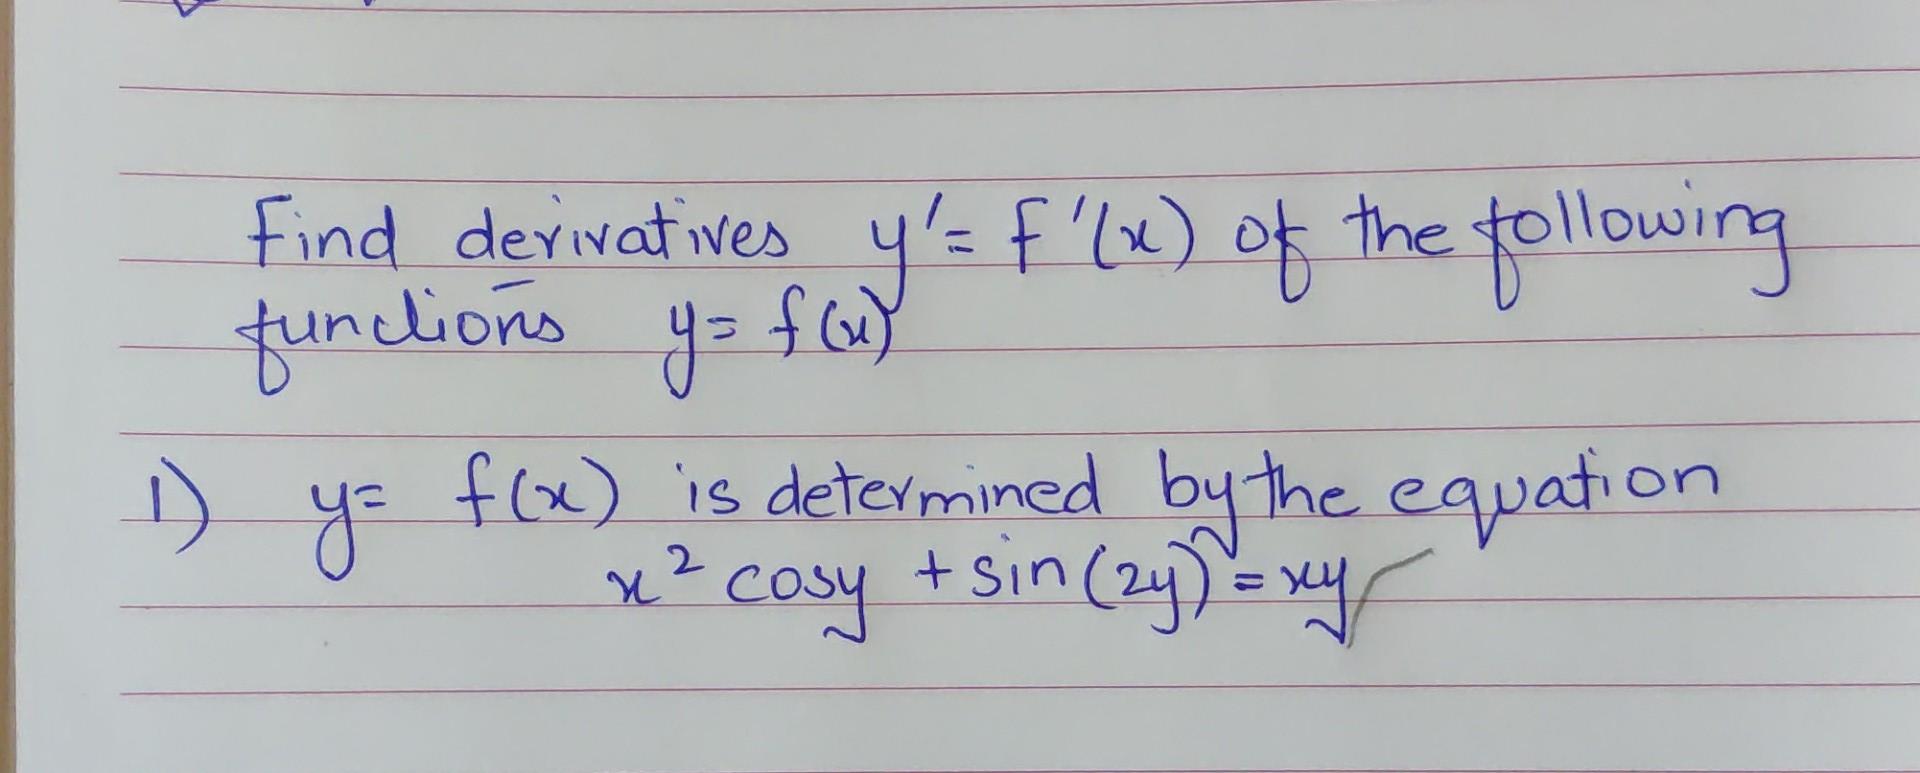 Find derivatives y' = f'(x) of the following
functions y = f(x)
1) y = f(x) is determined by the equation
x² cosy + sin(2y) = xy